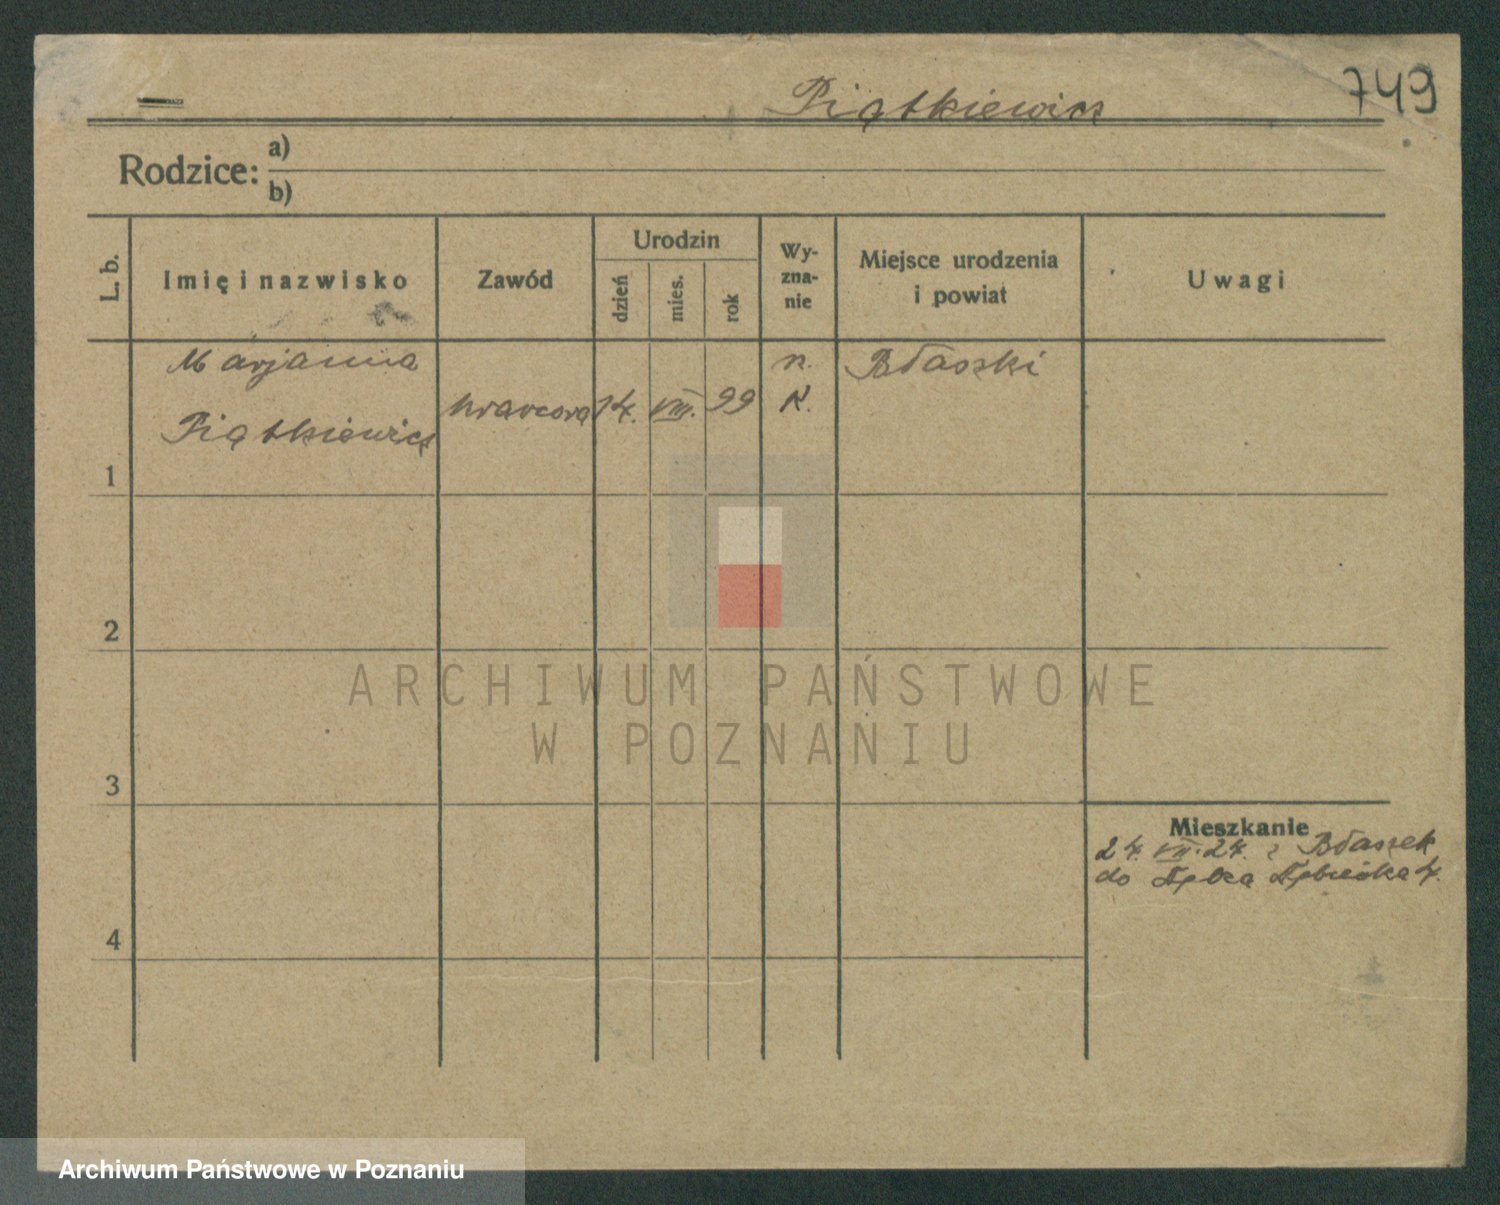 Piątkiewicz
749
Rodzice: a)
b)
L. b.
Imię i nazwisko
Zawód
Urodzin
dzień
mies.
rok
Wy-
zna-
nie
Miejsce urodzenia
i powiat
Uwagi
Marjanna
Piątkiewicz
krawcowa
14.
VIII.
99
r.
K.
Błaszki
1
2
3
4
Mieszkanie
24. VII. 24. z Błaszek
do
ARCHIWUM PAŃSTWOWE
W POZNANIU
Archiwum Państwowe w Poznaniu